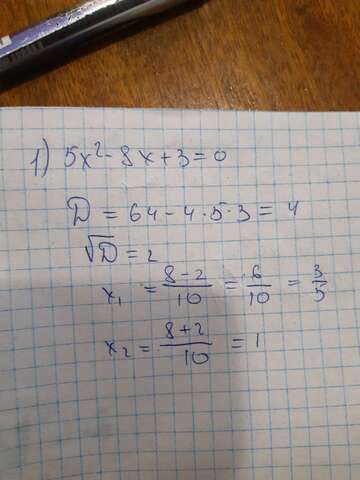 1) 5x² - 8x + 3 = 0
D = 64 - 4 · 5 · 3 = 4
√D = 2
x₁ = (8-2)/10 = 6/10 = 3/5
x₂ = (8+2)/10 = 1